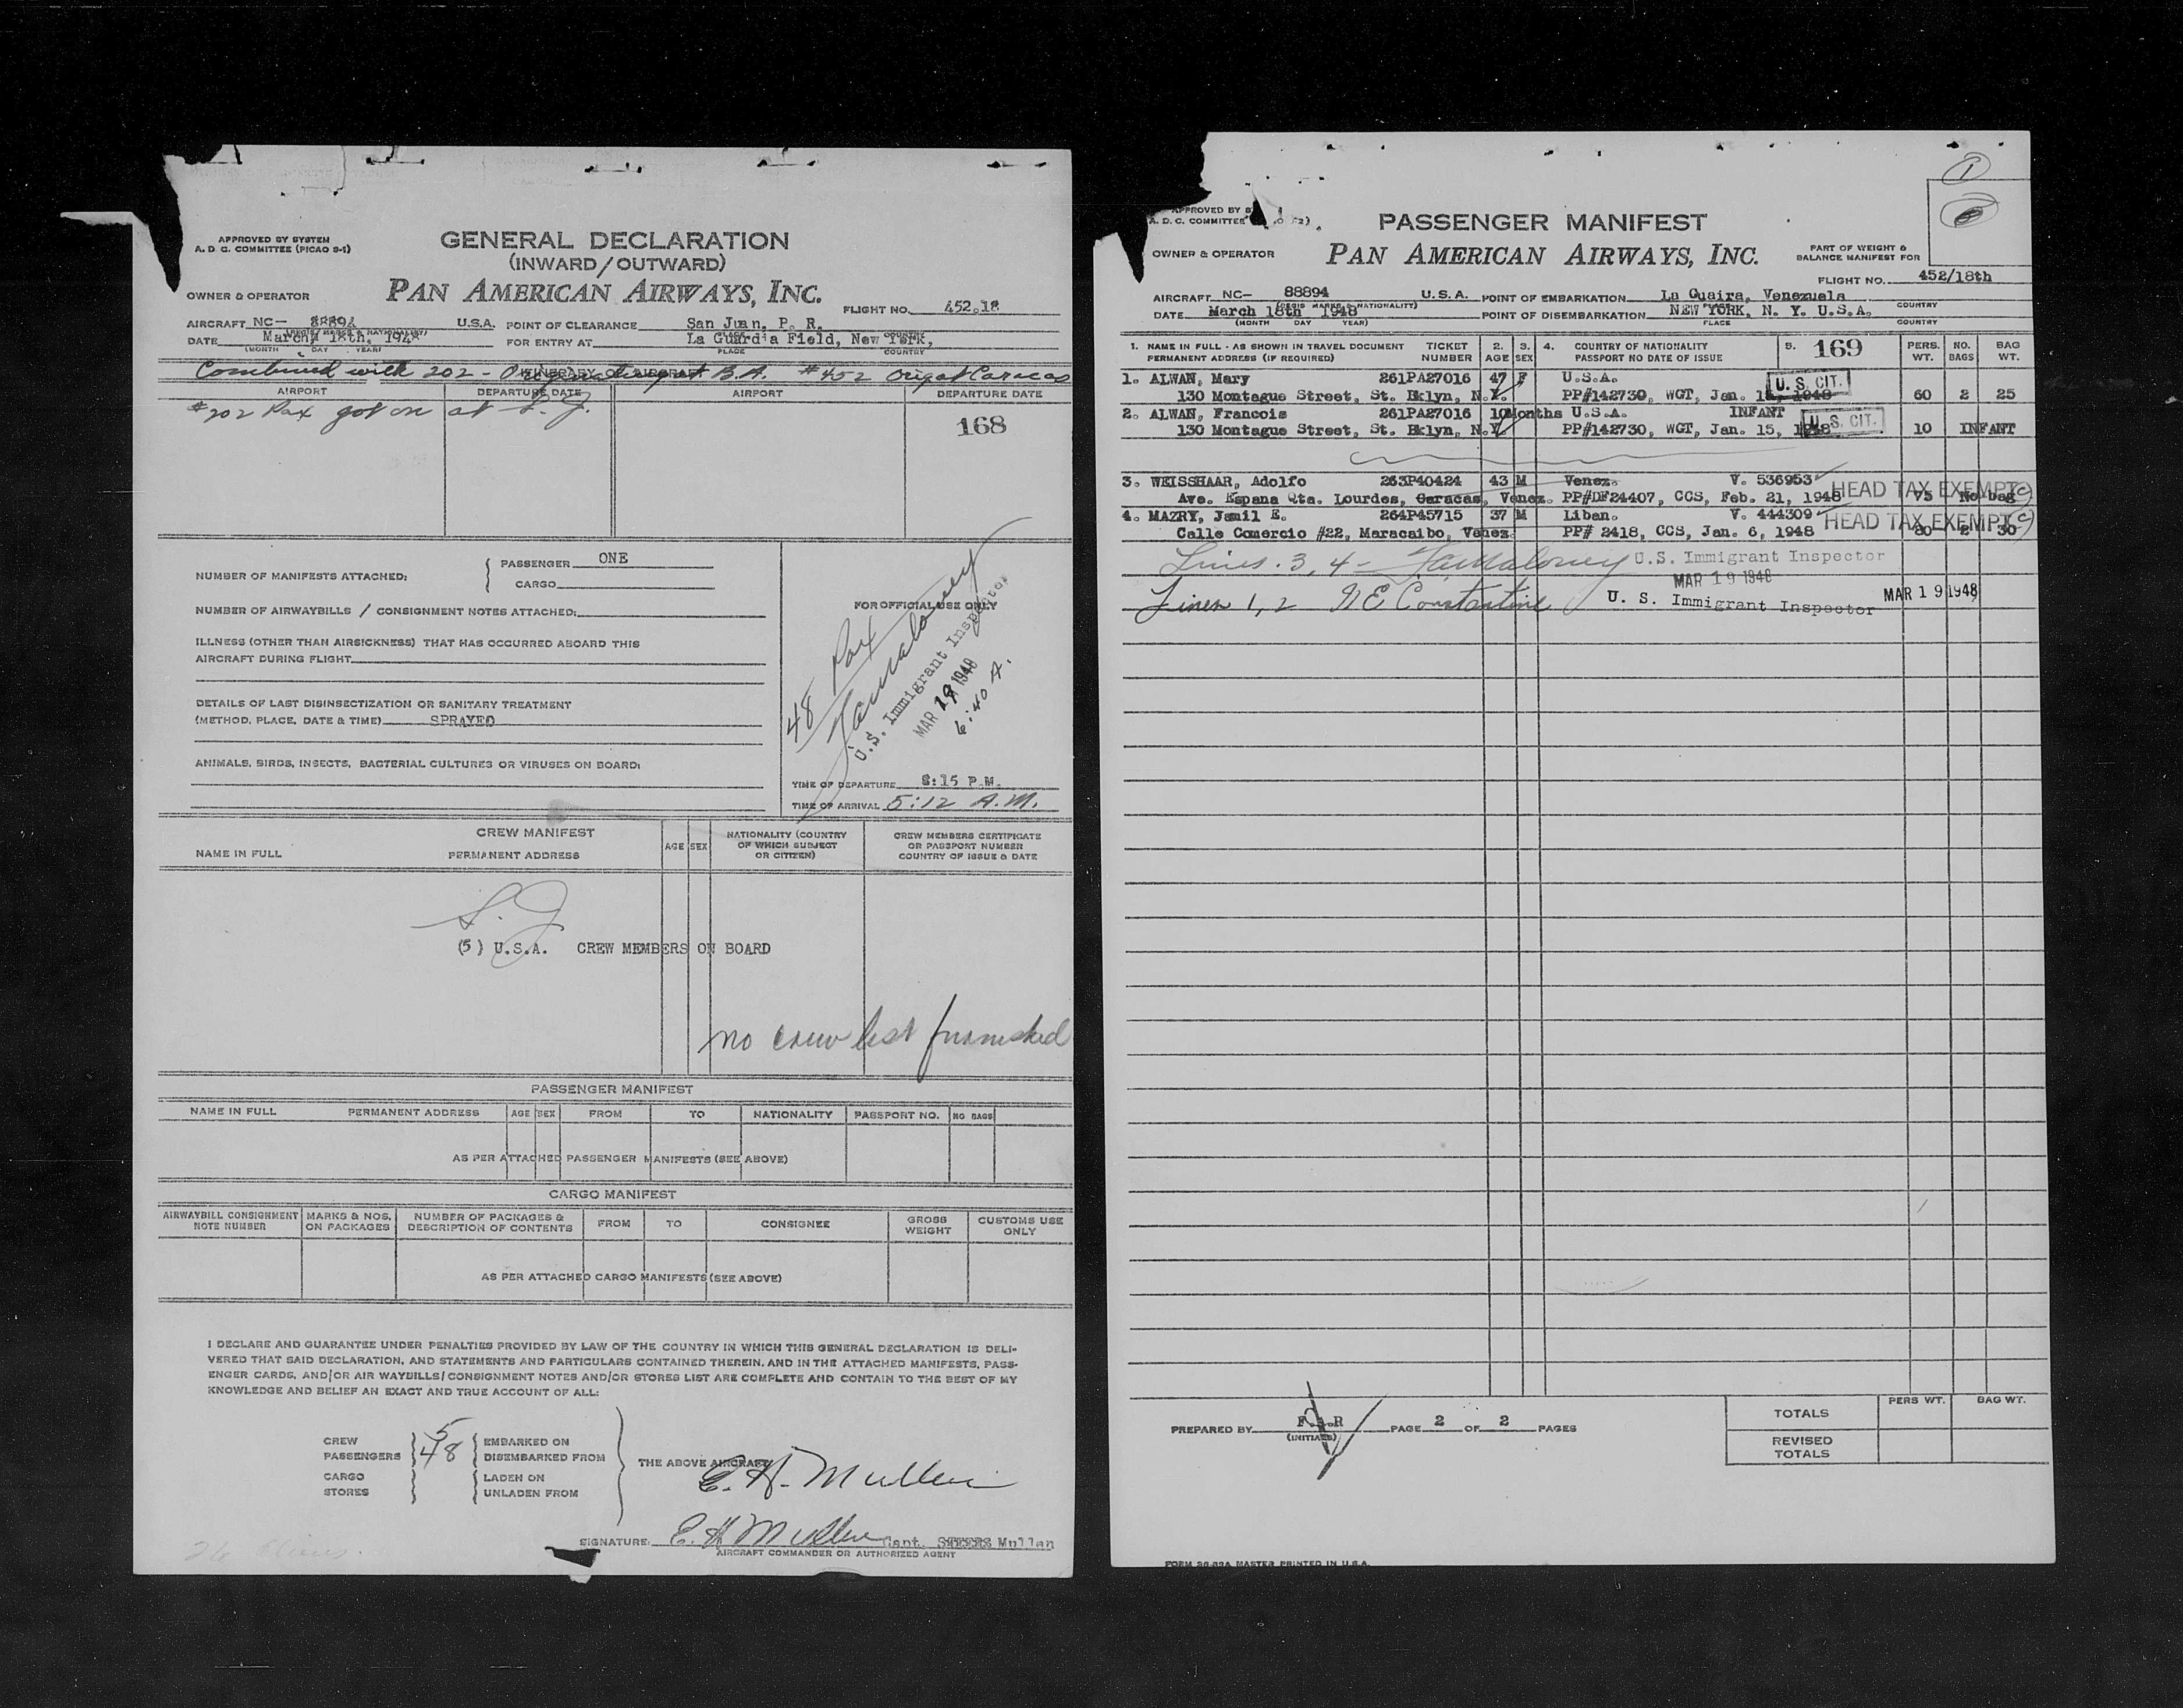 APPROVED BY SYSTEM
A. D. C. COMMITTEE (PICAO S-1)
GENERAL DECLARATION
(INWARD/OUTWARD)
OWNER & OPERATOR
PAN AMERICAN AIRWAYS, INC.
FLIGHT NO. 452.18
AIRCRAFT NC- 88894 U.S.A. POINT OF CLEARANCE San Juan, P. R.
(REGIS. MARKS & NATIONALITY) PLACE COUNTRY
DATE March 18th, 1948 FOR ENTRY AT La Guardia Field, New York,
(MONTH DAY YEAR) PLACE COUNTRY
ITINERARY OF AIRCRAFT
Combined with 202 - Originating at B.A. #452 Orig at Caracas
AIRPORT DEPARTURE DATE AIRPORT DEPARTURE DATE
#202 Pax got on at S. J.
168
NUMBER OF MANIFESTS ATTACHED:
PASSENGER ONE
CARGO
NUMBER OF AIRWAYBILLS / CONSIGNMENT NOTES ATTACHED:
ILLNESS (OTHER THAN AIRSICKNESS) THAT HAS OCCURRED ABOARD THIS
AIRCRAFT DURING FLIGHT
DETAILS OF LAST DISINSECTIZATION OR SANITARY TREATMENT
(METHOD, PLACE, DATE & TIME) SPRAYED
ANIMALS, BIRDS, INSECTS, BACTERIAL CULTURES OR VIRUSES ON BOARD:
FOR OFFICIAL USE ONLY
48 Pax
U.S. Immigrant Inspector
MAR 19 1948
6:40 A.
TIME OF DEPARTURE 8:15 P.M.
TIME OF ARRIVAL 5:12 A.M.
CREW MANIFEST
NAME IN FULL PERMANENT ADDRESS AGE SEX NATIONALITY (COUNTRY OF WHICH SUBJECT OR CITIZEN) CREW MEMBERS CERTIFICATE OR PASSPORT NUMBER COUNTRY OF ISSUE & DATE
S. J.
(5) U.S.A. CREW MEMBERS ON BOARD
no crew list furnished
PASSENGER MANIFEST
NAME IN FULL PERMANENT ADDRESS AGE SEX FROM TO NATIONALITY PASSPORT NO. NO BAGS
AS PER ATTACHED PASSENGER MANIFESTS (SEE ABOVE)
CARGO MANIFEST
AIRWAYBILL CONSIGNMENT NOTE NUMBER MARKS & NOS. ON PACKAGES NUMBER OF PACKAGES & DESCRIPTION OF CONTENTS FROM TO CONSIGNEE GROSS WEIGHT CUSTOMS USE ONLY
AS PER ATTACHED CARGO MANIFESTS (SEE ABOVE)
I DECLARE AND GUARANTEE UNDER PENALTIES PROVIDED BY LAW OF THE COUNTRY IN WHICH THIS GENERAL DECLARATION IS DELI-
VERED THAT SAID DECLARATION, AND STATEMENTS AND PARTICULARS CONTAINED THEREIN, AND IN THE ATTACHED MANIFESTS, PASS-
ENGER CARDS, AND/OR AIR WAYBILLS/CONSIGNMENT NOTES AND/OR STORES LIST ARE COMPLETE AND CONTAIN TO THE BEST OF MY
KNOWLEDGE AND BELIEF AN EXACT AND TRUE ACCOUNT OF ALL:
CREW 5 EMBARKED ON
PASSENGERS 48 DISEMBARKED FROM
THE ABOVE AIRCRAFT
CARGO LADEN ON
STORES UNLADEN FROM
E. H. Mullen
SIGNATURE: E H Mullen Capt. Mullen
AIRCRAFT COMMANDER OR AUTHORIZED AGENT
APPROVED BY
A. D. C. COMMITTEE
PASSENGER MANIFEST
1
OWNER & OPERATOR
PAN AMERICAN AIRWAYS, INC.
PART OF WEIGHT &
BALANCE MANIFEST FOR
FLIGHT NO. 452/18th
AIRCRAFT NC- 88894 U.S.A. POINT OF EMBARKATION La Guaira, Venezuela
(REGIS MARKS & NATIONALITY) PLACE COUNTRY
DATE March 18th 1948 POINT OF DISEMBARKATION NEW YORK, N. Y. U.S.A.
(MONTH DAY YEAR) PLACE COUNTRY
1. NAME IN FULL - AS SHOWN IN TRAVEL DOCUMENT TICKET 2. 3. 4. COUNTRY OF NATIONALITY 5. 169 PERS. NO. BAG
PERMANENT ADDRESS (IF REQUIRED) NUMBER AGE SEX PASSPORT NO DATE OF ISSUE WT. BAGS WT.
1. ALWAN, Mary 261PA27016 47 F U.S.A. U. S. CIT.
130 Montague Street, St. Bklyn, N.Y. PP#142730, WGT, Jan. 15, 1948 60 2 25
2. ALWAN, Francois 261PA27016 10Months U.S.A. INFANT U. S. CIT.
130 Montague Street, St. Bklyn, N.Y. PP#142730, WGT, Jan. 15, 1948 10 INFANT
3. WEISSHAAR, Adolfo 263P40424 43 M Venez. V. 536953 HEAD TAX EXEMPT
Ave. Espana Qta. Lourdes, Caracas, Venez. PP#DF24407, CCS, Feb. 21, 1948 75 No bag
4. MAZRY, Jamil E. 264P45715 37 M Liban. V. 444309 HEAD TAX EXEMPT
Calle Comercio #22, Maracaibo, Venez. PP# 2418, CCS, Jan. 6, 1948 80 2 30
Lines. 3, 4 - U.S. Immigrant Inspector
MAR 19 1948
Lines 1, 2 N E Constantine U. S. Immigrant Inspector MAR 19 1948
PREPARED BY PAGE 2 OF 2 PAGES
(INITIALS)
PERS WT. BAG WT.
TOTALS
REVISED
TOTALS
FORM 36-82A MASTER PRINTED IN U.S.A.